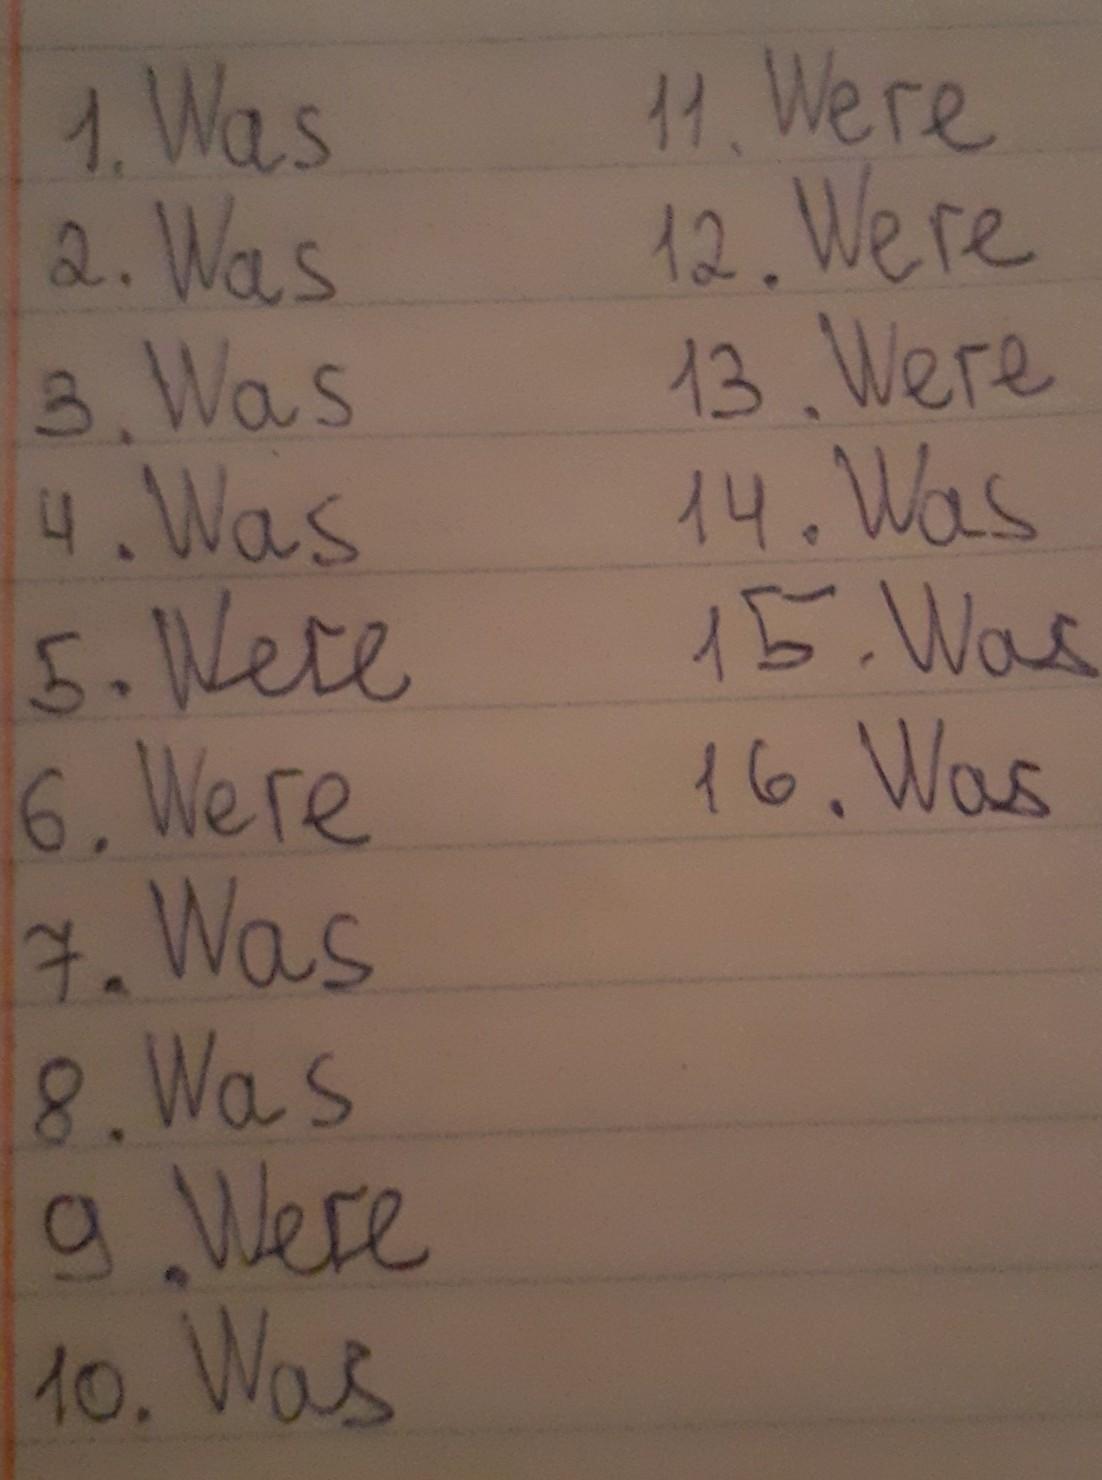 1. Was
2. Was
3. Was
4. Was
5. Were
6. Were
7. Was
8. Was
9. Were
10. Was
11. Were
12. Were
13. Were
14. Was
15. Was
16. Was